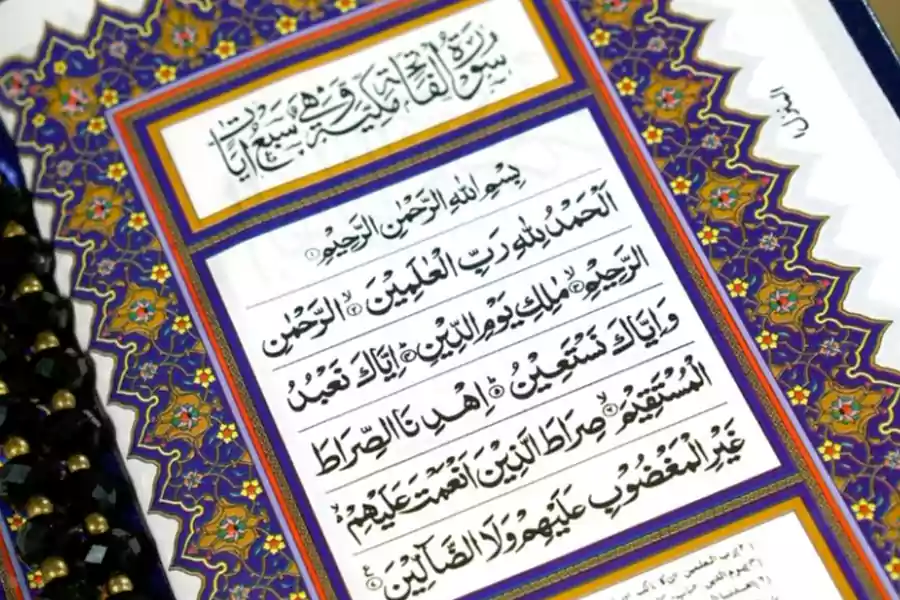 سُوْرَةُ الْفَاتِحَةِ مَكِّيَّةٌ وَّهِيَ سَبْعُ اٰيَاتٍ
بِسْمِ اللّٰهِ الرَّحْمٰنِ الرَّحِيْمِ ۝١
اَلْحَمْدُ لِلّٰهِ رَبِّ الْعٰلَمِيْنَ ۝٢ۙ الرَّحْمٰنِ
الرَّحِيْمِ ۝٣ۙ مٰلِكِ يَوْمِ الدِّيْنِ ۝٤ؕ اِيَّاكَ نَعْبُدُ
وَاِيَّاكَ نَسْتَعِيْنُ ۝٥ؕ اِهْدِنَا الصِّرَاطَ
الْمُسْتَقِيْمَ ۝٦ۙ صِرَاطَ الَّذِيْنَ اَنْعَمْتَ عَلَيْهِمْ ۙ
غَيْرِ الْمَغْضُوْبِ عَلَيْهِمْ وَلَا الضَّآلِّيْنَ ۝٧